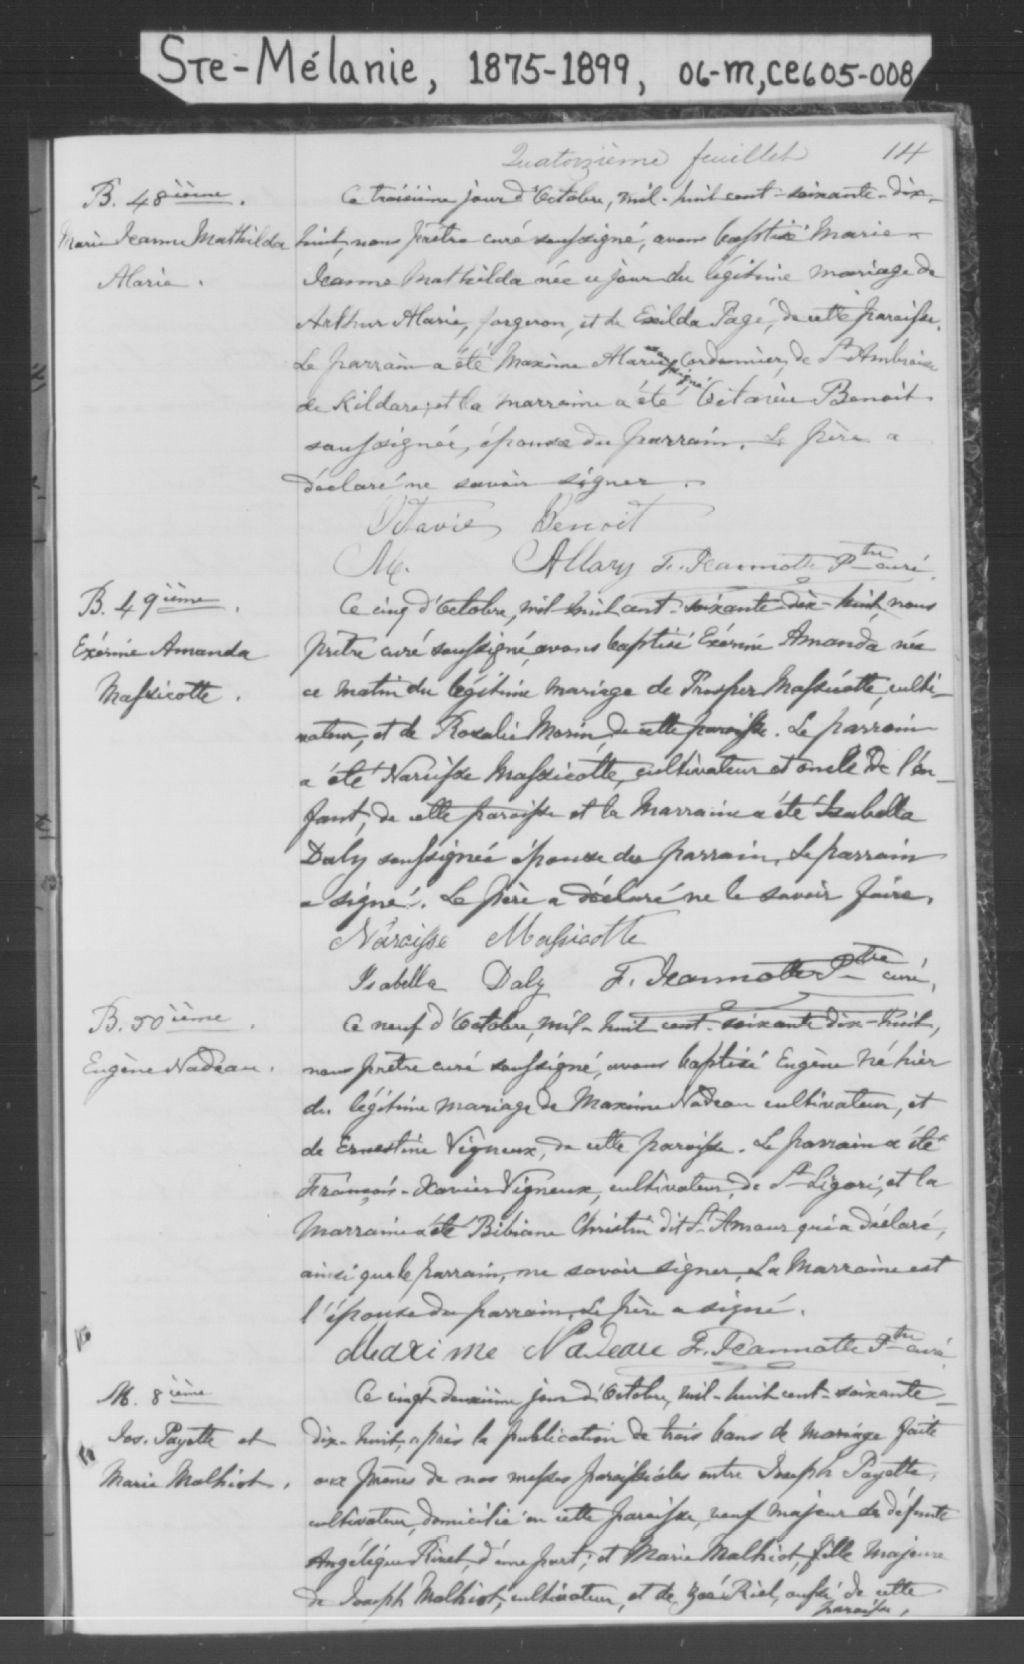 Ste-Mélanie, 1875-1899, 06-M, CE605-008
Quatorzième feuillet 14
B. 48ième.
Marie Jeanne Mathilda
Alarie.
Ce troisième jour d'Octobre, mil-huit cent-soixante-dix-
huit, nous prêtre curé soussigné, avons baptisé Marie
Jeanne Mathilda née ce jour du légitime mariage de
Arthur Alarie, forgeron, et de Exilda Pagé, de cette paroisse.
Le parrain a été Maxime Alarie soussigné Cordonnier, de St Ambroise
de Kildare; et la marraine a été Octavie Benoit
soussignée, épouse du parrain. Le père a
déclaré ne savoir signer.
Octavie Benoit
M. Allary F. Jeannotte Ptre curé
B. 49ième.
Exérine Amanda
Massicotte.
Ce cinq d'Octobre, mil-huit cent-soixante-dix-huit, nous
prêtre curé soussigné, avons baptisé Exérine Amanda née
ce matin du légitime mariage de Prosper Massicotte, culti-
vateur, et de Rosalie Morin, de cette paroisse. Le parrain
a été Narcisse Massicotte, cultivateur et oncle de l'en-
fant, de cette paroisse et la marraine a été Isabella
Daly soussignée épouse du parrain. Le parrain
a signé. Le père a déclaré ne le savoir faire.
Narcisse Massicotte
Isabella Daly F. Jeannotte Ptre curé,
B. 50ième.
Eugène Nadeau.
Ce neuf d'Octobre, mil-huit cent-soixante dix-huit,
nous prêtre curé soussigné, avons baptisé Eugène né hier
du légitime mariage de Maxime Nadeau cultivateur, et
de Ernestine Vigneux, de cette paroisse. Le parrain a été
François-Xavier Vigneux, cultivateur, de St Ligori, et la
Marraine a été Bibiane Christin dit St Amour qui a déclaré,
ainsi que le parrain, ne savoir signer. La Marraine est
l'épouse du parrain. Le père a signé.
Maxime Nadeau F. Jeannotte Ptre curé
M. 8ième
Jos. Payette et
Marie Malhiot.
Ce vingt-deuxième jour d'Octobre, mil-huit cent-soixante-
dix-huit, après la publication de trois bans de mariage faite
aux prônes de nos messes paroissiales entre Joseph Payette,
cultivateur, domicilié en cette paroisse, veuf majeur de défunte
Angélique Rivet, d'une part; et Marie Malhiot, fille majeure
de Joseph Malhiot, cultivateur, et de Zoé Riel, aussi de cette
paroisse,